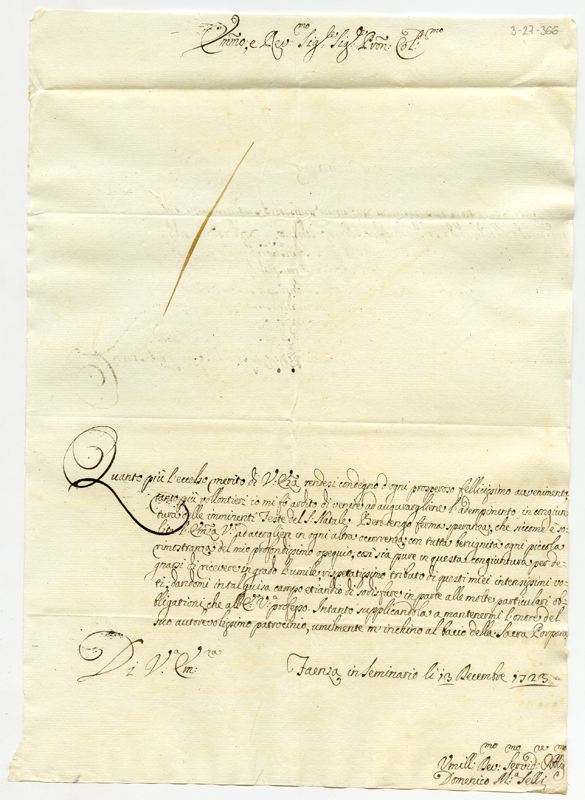 3-27-366
Em̃o, e Rev:mo Sig:r Sig:r Pron: Col:mo
Quanto più l'eccelso merito di V: Em̃za rendesi condegno d'ogni prosperoso fellicissimo avvenimento
tanto più vollontieri io mi fò ardito di venire ad augurargliene l'adempimento in congiun
tura delle imminenti Feste del S. Natale; Portendo ferma speranza, che sicome è so
lita l'Em̃za V:a ad accogliere in ogni altra occorrenza, con tutta benignità ogni piccola
rimostranza del mio profondissimo ossequio, così sia pure in questa congiuntura per de
gnarsi di ricevere in grado l'umile, rispettatissimo tributo di questi miei intensissimi vo
ti, dandomi in tal guisa campo etiandio di sodisfare in parte alle molte particulari ob
bligationi, che all'E: V:a professo. Intanto supplicandola a mantenermi l'onore del
suo autorevolissimo patrocinio, umilmente m'inchino al bacio della Sacra Porpora
Di V:a Em:za
Faenza in Seminario li 13 Decembre 1723
Umill:mo Dev:mo Servid:re Obb:mo
Domenico M:a Selli